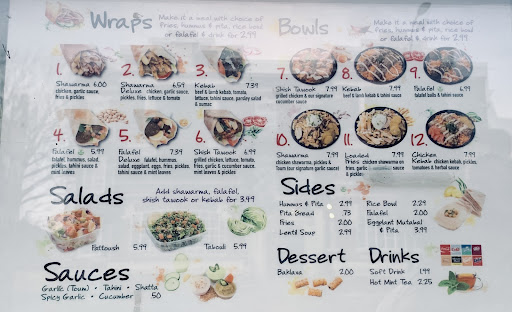 Wraps
Make it a meal with choice of
fries, hummus & pita, rice bowl
or falafel & drink for 2.99
1.
Shawarma 6.00
chicken, garlic sauce,
fries & pickles
2.
Shawarma 6.59
Deluxe chicken, garlic sauce,
pickles, fries, lettuce & tomato
3.
Kebab 7.39
beef & lamb kebab, tomato,
onions, tahini sauce, parsley salad
& sumac
4.
Falafel 5.99
falafel, hummus, salad,
pickles, tahini sauce &
mint leaves
5.
Falafel 7.39
Deluxe falafel, hummus,
salad, eggplant, eggs, fries, pickles,
tahini sauce & mint leaves
6.
Shish Taouk 6.99
grilled chicken, lettuce, tomato,
fries, garlic & cucumber sauce,
mint leaves & pickles
Salads
Add shawarma, falafel,
shish tawook or kebab for 3.99
Fattoush 5.99
Tabouli 5.99
Sauces
Garlic (Toum) • Tahini • Shatta
Spicy Garlic • Cucumber 50
Bowls
Make it a meal with choice of
Fries, hummus & pita, rice bowl
or falafel & drink for 2.99
7.
Shish Taouk 7.99
grilled chicken & our signature
cucumber sauce
8.
Kebab 9.99
beef & lamb kebab & tahini sauce
9.
Falafel 6.99
falafel balls & tahini sauce
10.
Shawarma 7.99
chicken shawarma, pickles &
Toum (our signature garlic sauce)
11.
Loaded 7.99
Fries chicken shawarma on
fries, garlic sauce & pickles
12.
Chicken 7.99
Kebab chicken kebab, pickles,
tomatoes & herbal sauce
Sides
Hummus & Pita 2.99
Pita Bread .75
Fries 2.00
Lentil Soup 2.99
Rice Bowl 2.29
Falafel 2.00
Eggplant Mutabal
& Pita 3.99
Dessert
Baklava 2.00
Drinks
Soft Drink 1.99
Hot Mint Tea 2.25